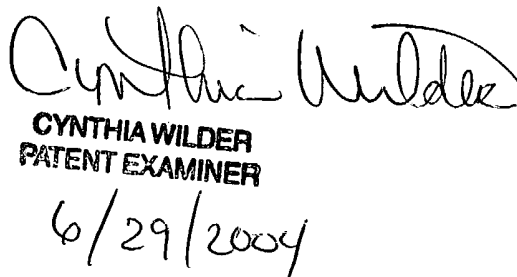 Cynthia Wilder
CYNTHIA WILDER
PATENT EXAMINER
6/29/2004